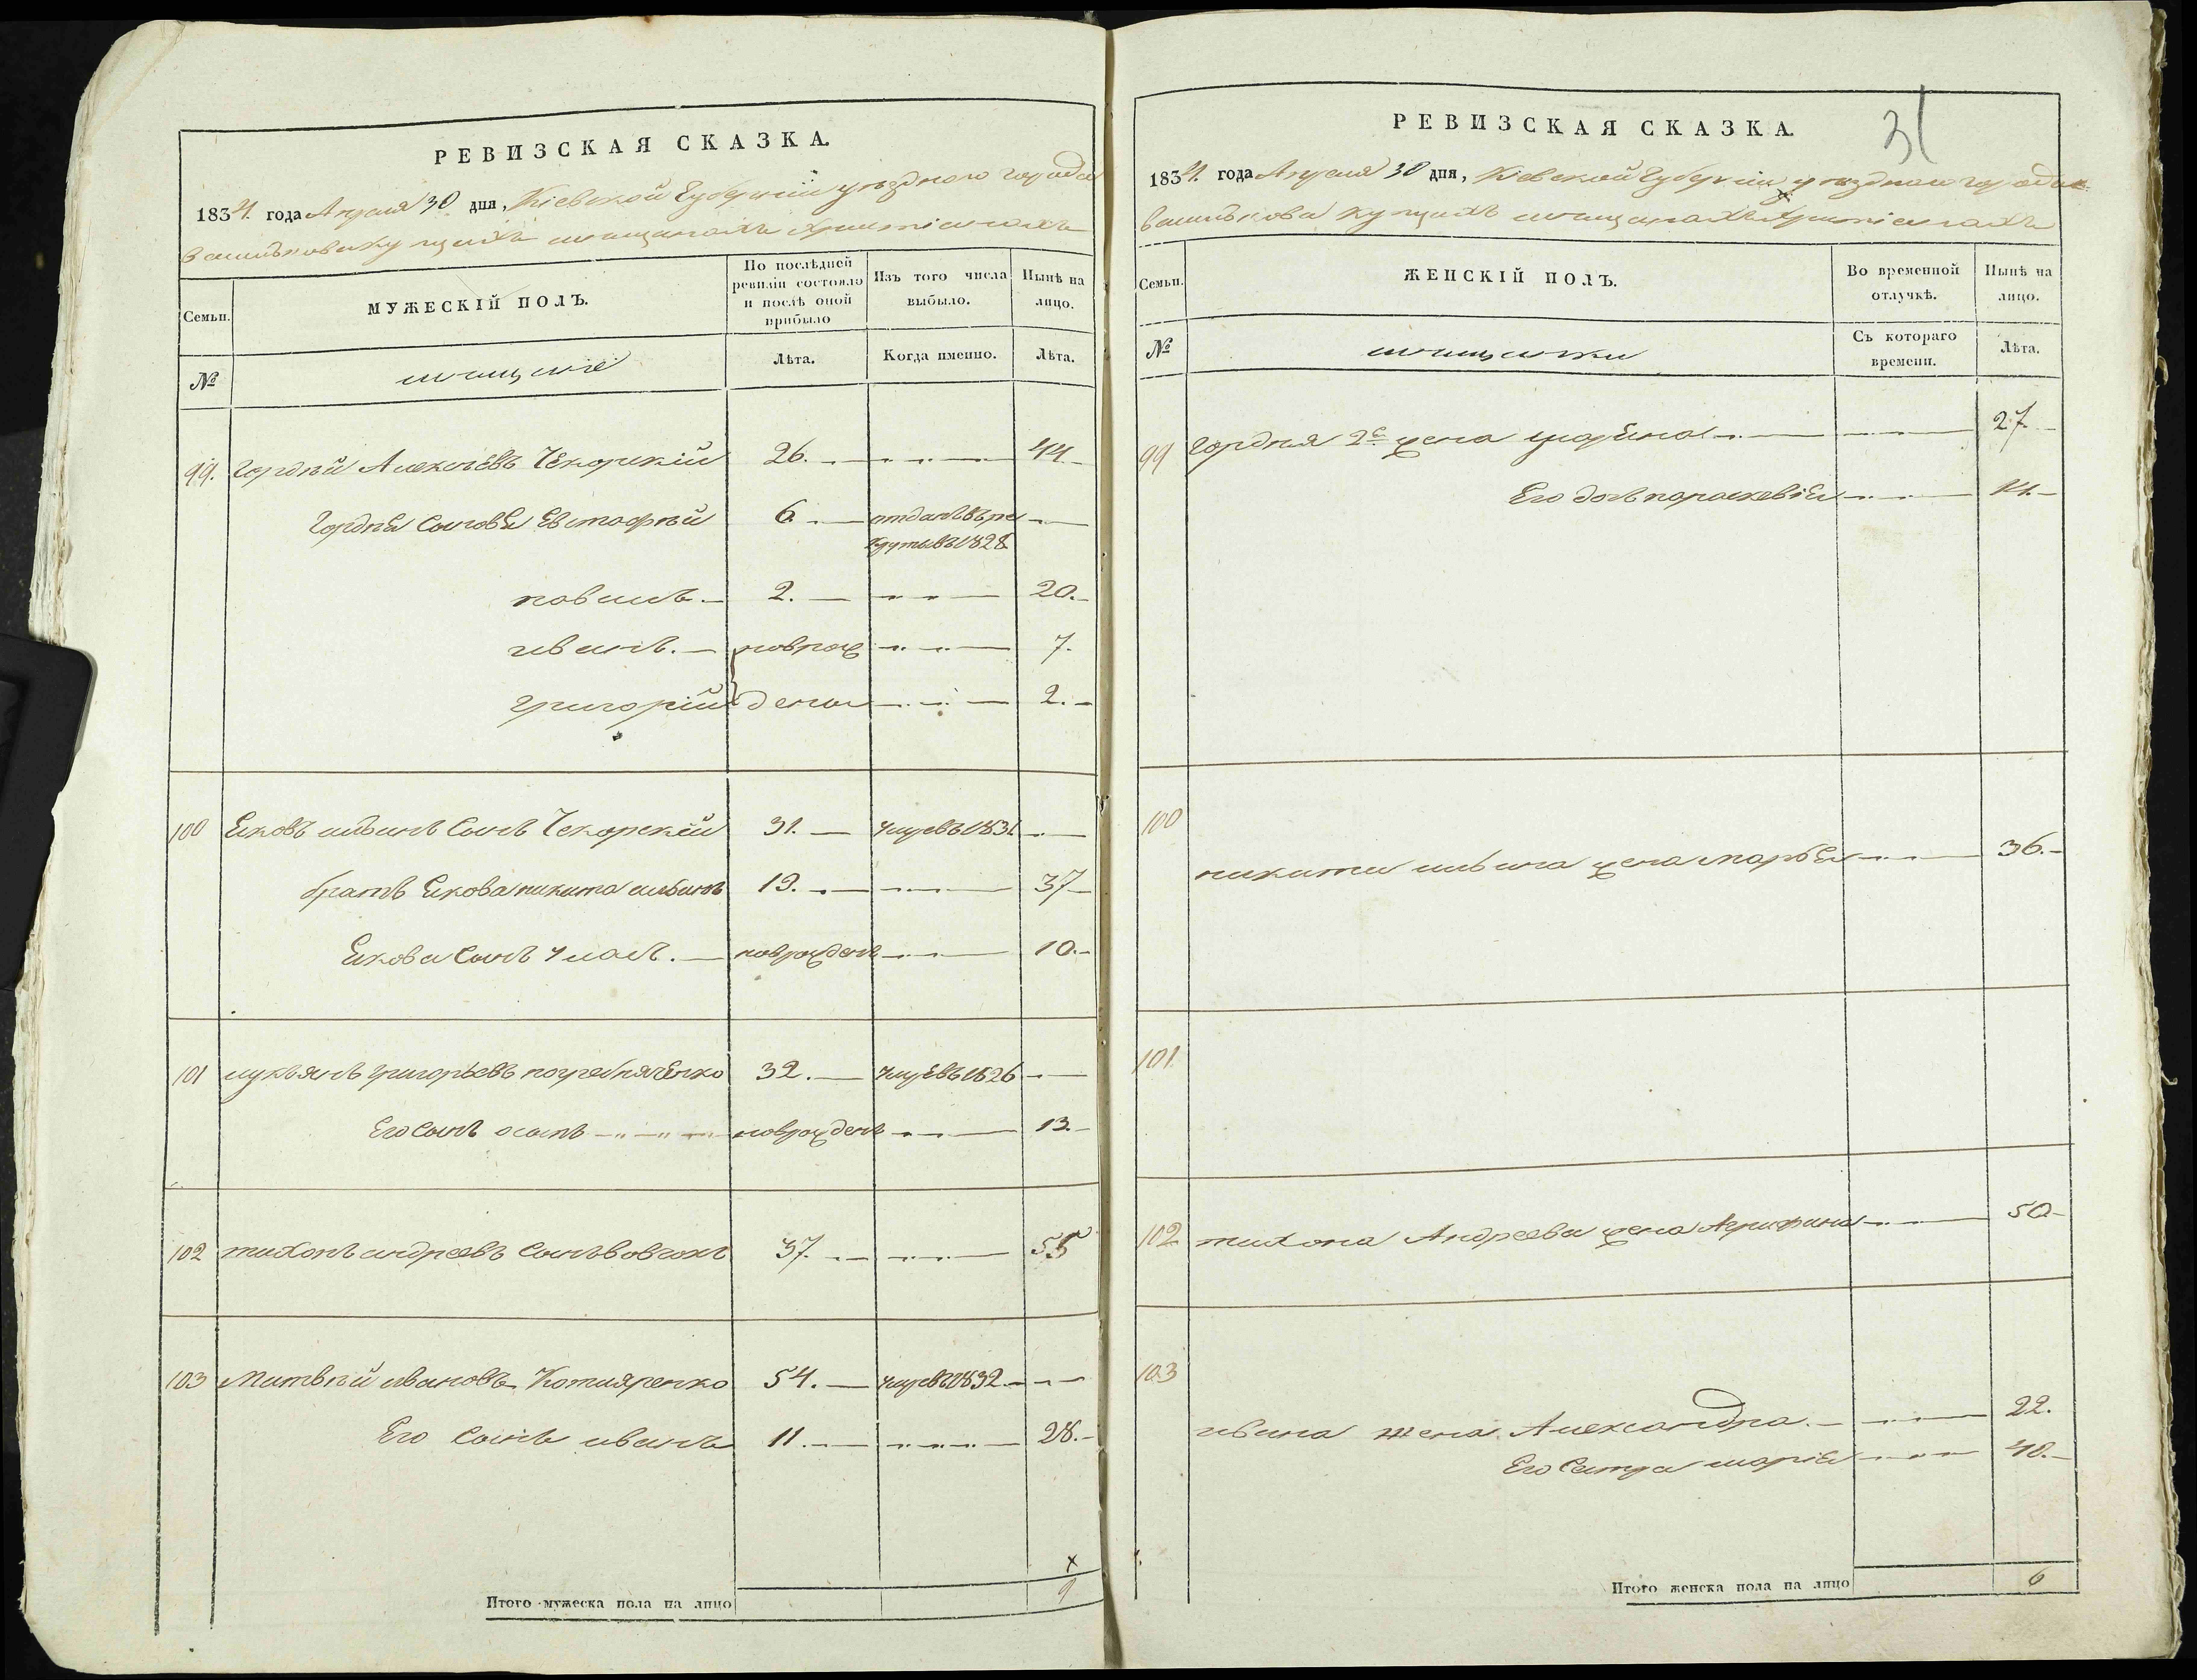 РЕВИЗСКАЯ СКАЗКА.
1834. года Апреля 30 дня, Кіевской Губерніи уезднаго города
Василькова купцахъ мещанахъ христіанахъ
Семьи.
МУЖЕСКІЙ ПОЛЪ.
По послѣдней ревизіи состояло и послѣ оной прибыло
Изъ того числа выбыло.
Нынѣ на лицо.
№
мещане
Лѣта.
Когда именно.
Лѣта.
99. Гордѣй Алексеевъ 26. 44
Гордея сыновья Евстафѣй 6. отданъ въ ре
круты въ 1828
2. 20.
иванъ. новрож 7.
григорій дены 2.
100 Яковъ ильинъ сынъ 31. умре въ 1831.
братъ Якова никита ильинъ 19. 37
Якова сынъ новрожденъ 10.
101 лукъянъ григорьевъ погребняченко 32. умре въ 1826
Его сынъ осипъ новрожденъ 13.
102 тихонъ андреевъ сынъ вовчокъ 37. 55
103 Матвѣй ивановъ Котляренко 54. умре въ 1832
Его сынъ иванъ 11. 28.
Итого мужеска пола на лицо
x
9
31
РЕВИЗСКАЯ СКАЗКА.
1834. года Апреля 30 дня, Кіевской Губерніи уезднаго города
Василькова купцахъ мещанахъ христіанахъ
Семьи.
ЖЕНСКІЙ ПОЛЪ.
Во временной отлучкѣ.
Нынѣ на лицо.
№
мещанки
Съ котораго времени.
Лѣта.
99 Гордея 2я жена 27.
Его дочь параскевія 14.
100
никиты ильина жена марья 36.
101
102 тихона Андреева жена Агрифина 50
103
ивана жена Александра. 22.
Его сестра марія 40.
Итого женска пола на лицо 6